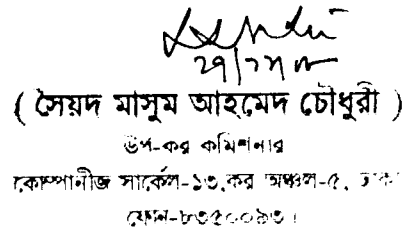 ( সৈয়দ মাসুম আহমেদ চৌধুরী )
উপ-কর কমিশনার
কোম্পানীজ সার্কেল-১৩,কর অঞ্চল-৫, ঢাকা
ফোন-৮৩৫০০৯৩।